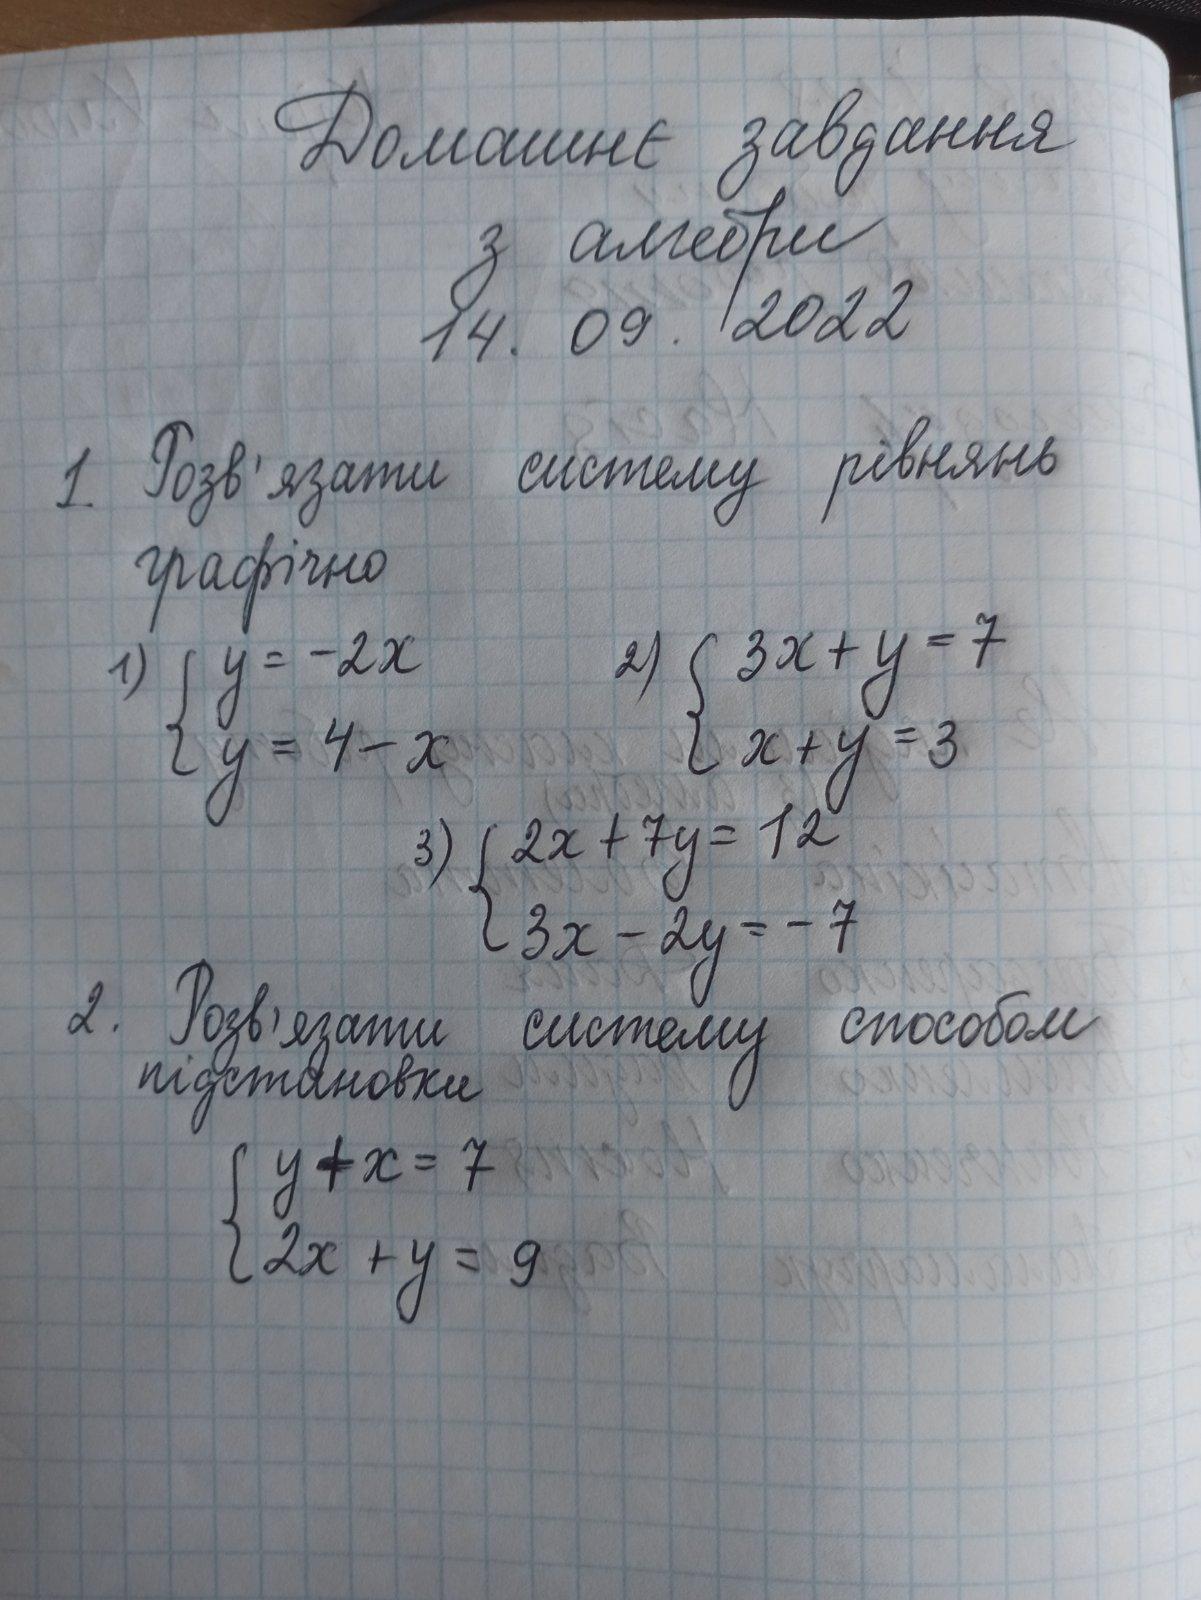 Домашнє завдання
з алгебри
14. 09. 2022
1. Розв'язати систему рівнянь
графічно
1) { y = -2x 2) { 3x + y = 7
y = 4 - x x + y = 3
3) { 2x + 7y = 12
3x - 2y = -7
2. Розв'язати систему способом
підстановки
{ y + x = 7
2x + y = 9